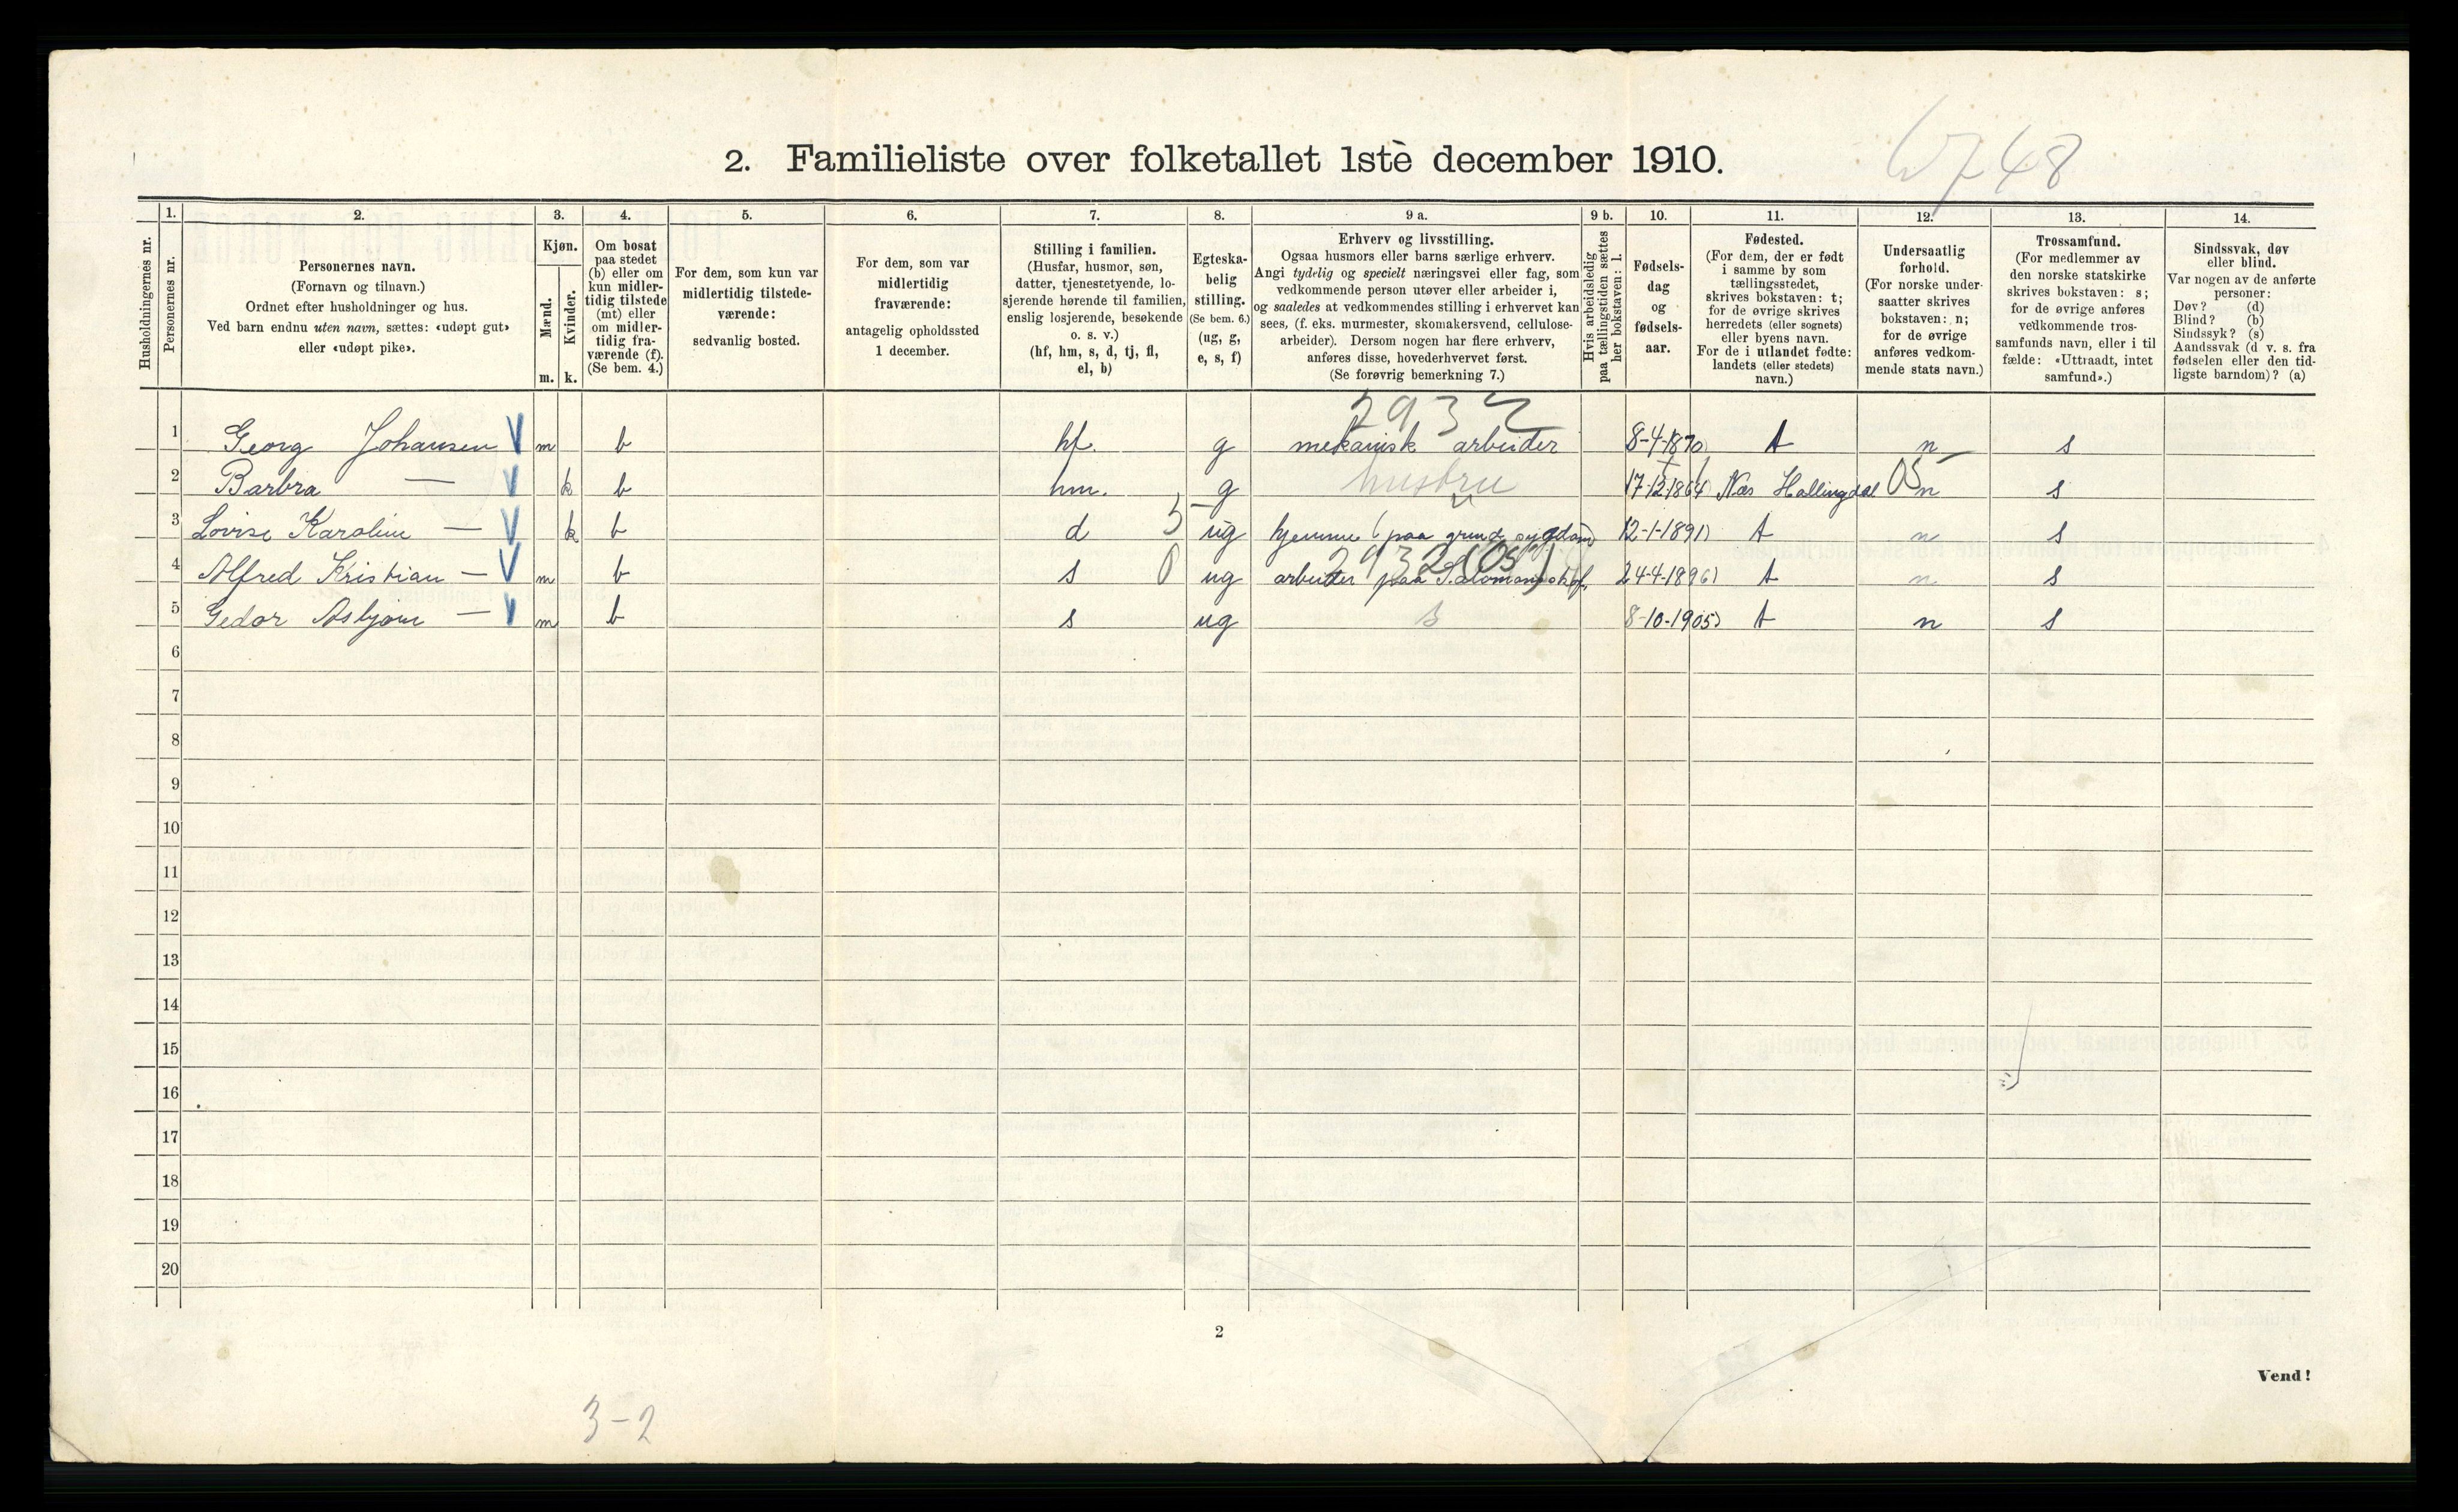 6748
2. Familieliste over folketallet 1stè december 1910.
Husholdningernes nr.
1.
Personernes nr.
2.
Personernes navn.
(Fornavn og tilnavn.)
Ordnet efter husholdninger og hus.
Ved barn endnu uten navn, sættes: «udøpt gut»
eller «udøpt pike».
3.
Kjøn.
Mænd.
Kvinder.
m.
k.
4.
Om bosat
paa stedet
(b) eller om
kun midler-
tidig tilstede
(mt) eller
om midler-
tidig fra-
værende (f).
(Se bem. 4.)
5.
For dem, som kun var
midlertidig tilstede-
værende:
sedvanlig bosted.
6.
For dem, som var
midlertidig
fraværende:
antagelig opholdssted
1 december.
7.
Stilling i familien.
(Husfar, husmor, søn,
datter, tjenestetyende, lo-
sjerende hørende til familien,
enslig losjerende, besøkende
o. s. v.)
(hf, hm, s, d, tj, fl,
el, b)
8.
Egteska-
belig
stilling.
(Se bem. 6.)
(ug, g,
e, s, f)
9 a.
Erhverv og livsstilling.
Ogsaa husmors eller barns særlige erhverv.
Angi tydelig og specielt næringsvei eller fag, som
vedkommende person utøver eller arbeider i,
og saaledes at vedkommendes stilling i erhvervet kan
sees, (f. eks. murmester, skomakersvend, cellulose-
arbeider). Dersom nogen har flere erhverv,
anføres disse, hovederhvervet først.
(Se forøvrig bemerkning 7.)
9 b.
Hvis arbeidsledig
paa tællingstiden sættes
her bokstaven: l.
10.
Fødsels-
dag
og
fødsels-
aar.
11.
Fødested.
(For dem, der er født
i samme by som
tællingsstedet,
skrives bokstaven: t;
for de øvrige skrives
herredets (eller sognets)
eller byens navn.
For de i utlandet fødte:
landets (eller stedets)
navn.)
12.
Undersaatlig
forhold.
(For norske under-
saatter skrives
bokstaven: n;
for de øvrige
anføres vedkom-
mende stats navn.)
13.
Trossamfund.
(For medlemmer av
den norske statskirke
skrives bokstaven: s;
for de øvrige anføres
vedkommende tros-
samfunds navn, eller i til
fælde: «Uttraadt, intet
samfund».)
14.
Sindssvak, døv
eller blind.
Var nogen av de anførte
personer:
Døv? (d)
Blind? (b)
Sindssyk? (s)
Aandssvak (d v. s. fra
fødselen eller den tid-
ligste barndom)? (a)
2932
1 Georg Johansen V m b hf. g mekanisk arbeider 8-4-1870 t n s
2 Barbra — V k b hm. g hustru 17-12-1864 Næs Hallingdal 05 n s
3 Lovise Karoline — V k b d 5 ug hjemme (paa grund sygdom) 12-1-1891 t n s
2932 (05)
4 Alfred Kristian — V m b s 0 ug arbeider paa 24-4-1896 t n s
5 Gedor Asbjørn — V m b s ug s 8-10-1905 t n s
6
7
8
9
10
11
12
13
14
15
16
17
18
19
20
2
Vend!
3-2